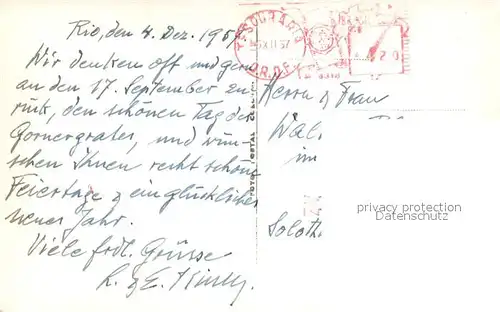 Rio, den 4. Dez. 195
Wir denken oft und gern
an den 17. September zu-
rück, den schönen Tag der
Gornergrates, und wün-
schen Ihnen recht schöne
Feiertage & ein glückliches
neues Jahr.
Viele frdl. Grüsse
L. & E.
Herrn & Frau
Wal
im
Soloth
privacy protection
Datenschutz